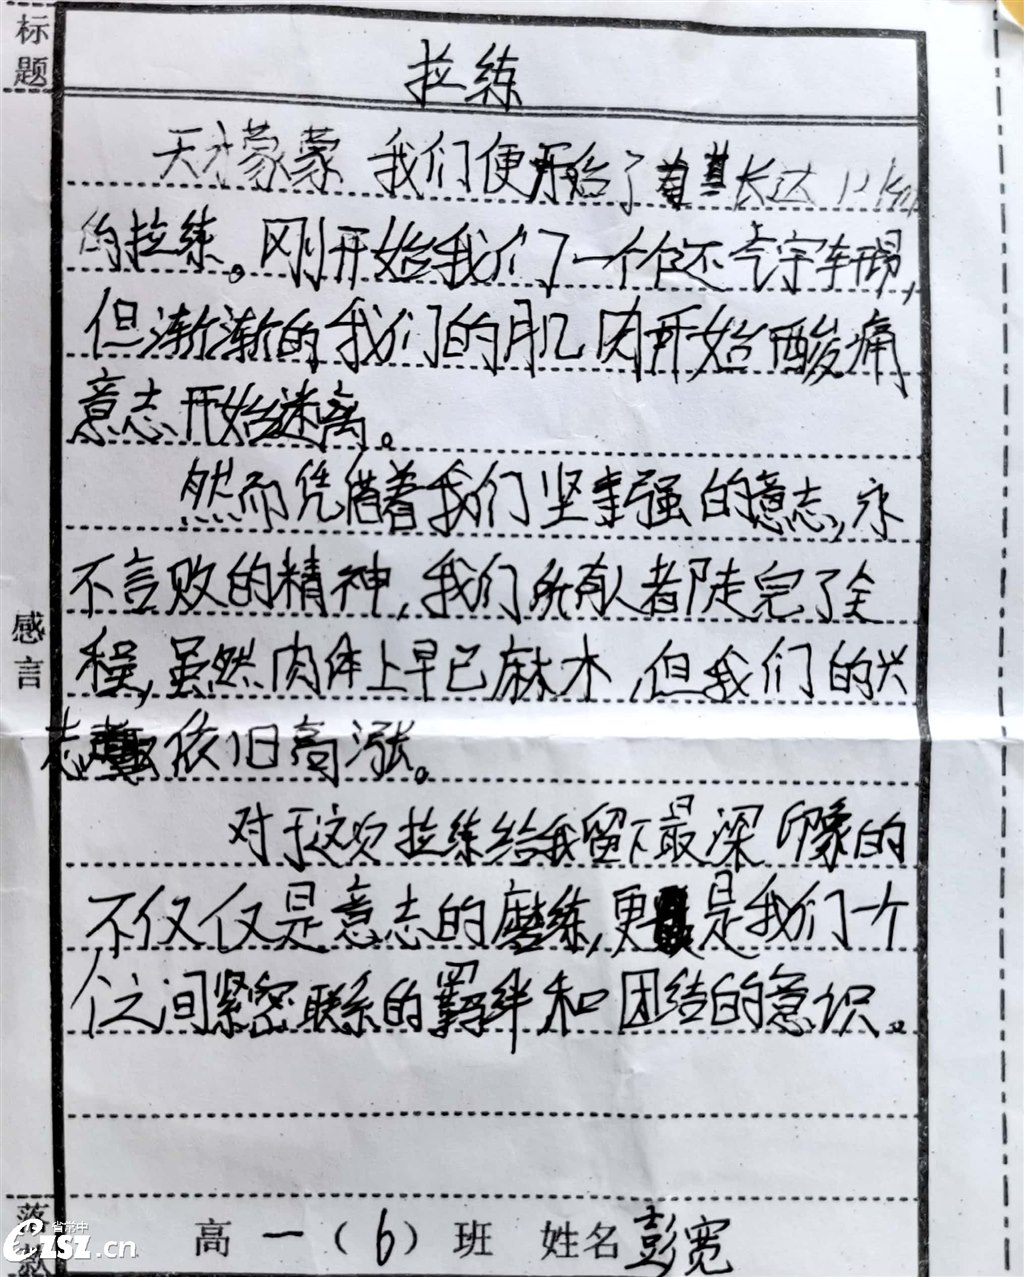 标题
拉练
天才蒙蒙 我们便开始了 长达12km
的拉练。刚开始我们一个个还气宇轩昂,
但渐渐的我们的肌肉开始酸痛
意志开始迷离。
然而凭借着我们坚强的意志,永
不言败的精神,我们所有人都走完了全
程,虽然肉体上早已麻木,但我们的兴
志 依旧高涨。
感言
对于这次拉练给我留下最深印象的
不仅仅是意志的磨练,更是我们一个
个之间紧密联系的羁绊和团结的意识。
落款
高一(6)班 姓名彭宽
省常中
CZSZ.cn